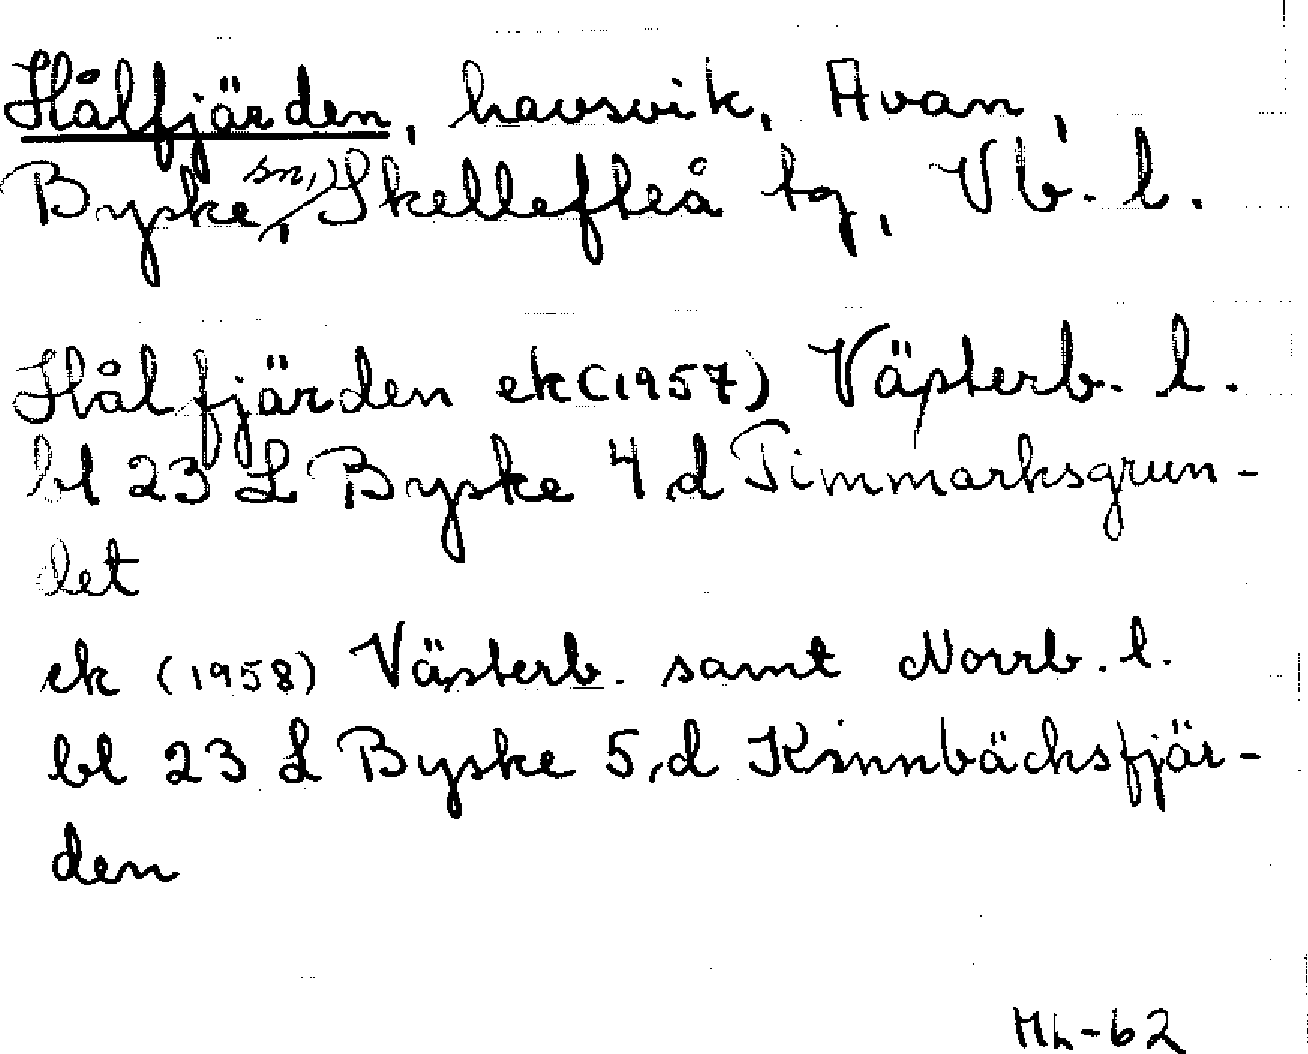 Hålfjärden, havsvik, Avan,
Byske sn, Skellefteå tg, Vb. l.
Hålfjärden ek (1957) Västerb. l.
bl 23 L Byske 4 d Timmarksgrun-
det
ek (1958) Västerb. samt Norrb. l.
bl 23 L Byske 5, d Kinnbäcksfjär-
den
Mh-62